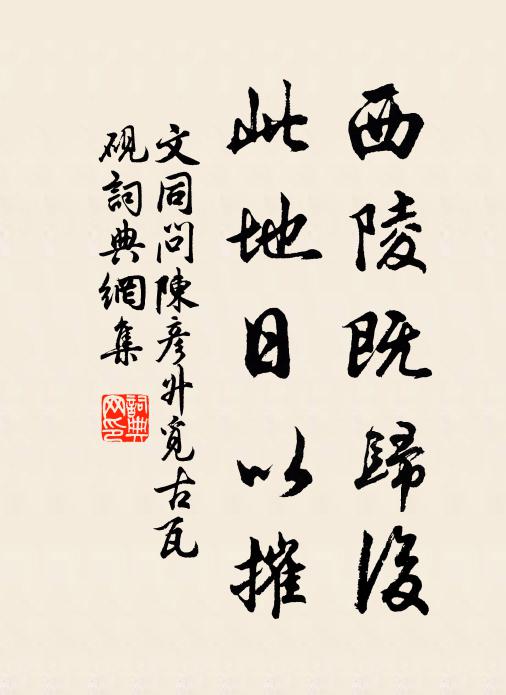 西陵既歸後
此地日以摧
文同問陳彦升覓古瓦
硯詞典網集
詞典
网印